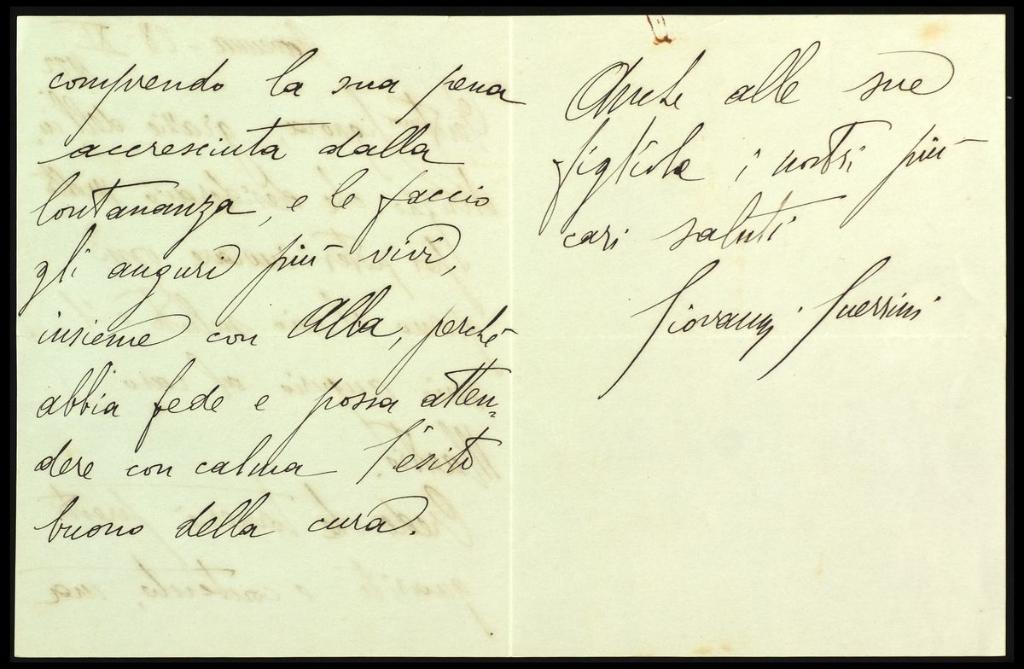 comprendo la sua pena
accresciuta dalla
lontananza, e le faccio
gli auguri più vivi,
insieme con Alba, perchè
abbia fede e possa atten=
dere con calma l'esito
buono della cura.
Anche alle sue
figliole i nostri più
cari saluti
Giovanni Guerrini